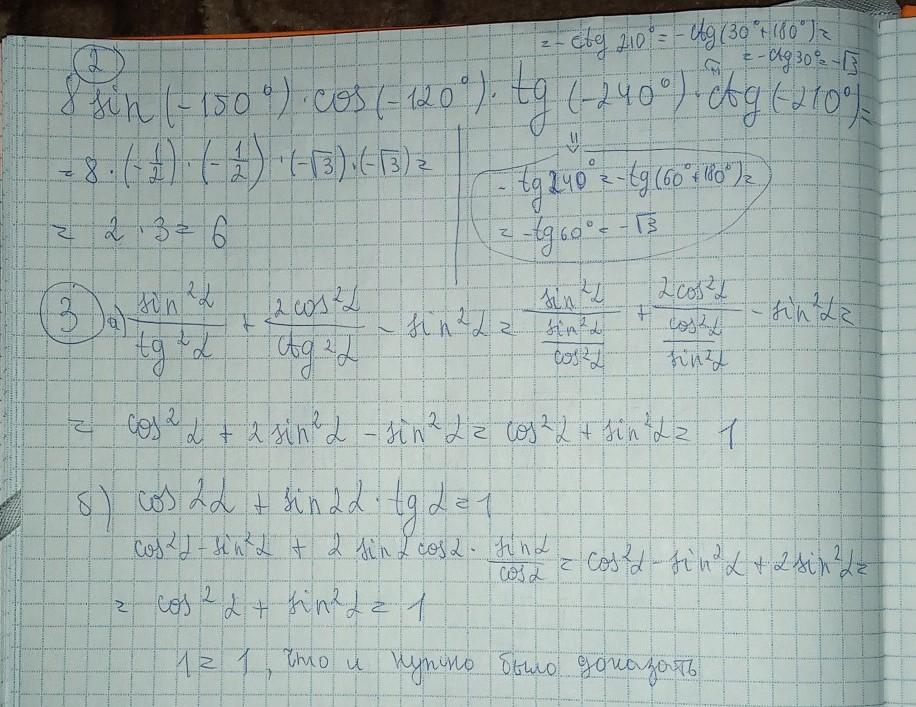 = -ctg 210° = -ctg(30°+180°) =
= -ctg30° = -√3
2
8 sin(-150°) · cos(-120°) · tg(-240°) · ctg(-210°) =
= 8 · (-1/2) · (-1/2) · (-√3) · (-√3) =
- tg240° = -tg(60°+180°) =
= -tg60° = -√3
= 2 · 3 = 6
3 а) sin²α/tg²α + 2cos²α/ctg²α - sin²α = sin²α/(sin²α/cos²α) + 2cos²α/(cos²α/sin²α) - sin²α =
= cos²α + 2sin²α - sin²α = cos²α + sin²α = 1
б) cos2α + sin2α · tgα = 1
cos²α - sin²α + 2 sinα cosα · sinα/cosα = cos²α - sin²α + 2sin²α =
= cos²α + sin²α = 1
1 = 1, что и нужно было доказать